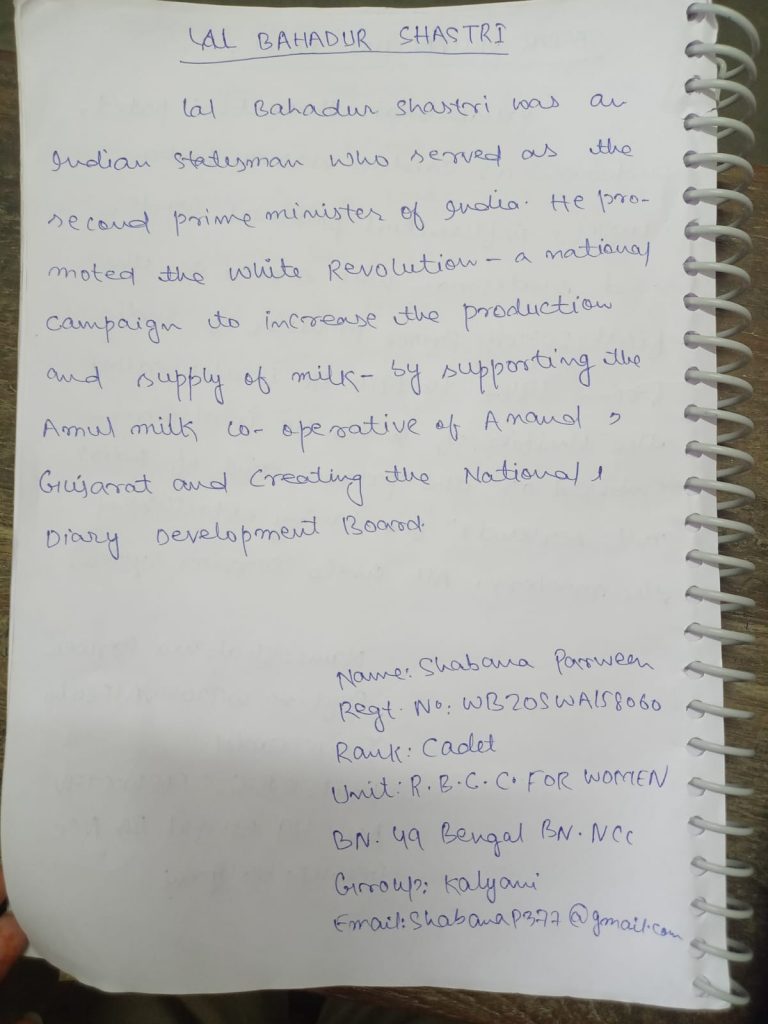 LAL BAHADUR SHASTRI
Lal Bahadur Shastri was an
Indian Statesman who served as the
second prime minister of India. He pro-
moted the White Revolution - a national
campaign to increase the production
and supply of milk - by supporting the
Amul milk co-operative of Anand ,
Gujarat and Creating the National
Diary Development Board.
Name: Shabana Parween
Regt. No: WB20SWA158060
Rank: Cadet
Unit: R.B.C.C. FOR WOMEN
BN. 49 Bengal BN. NCC
Group: Kalyani
Email: ShabanaP377@gmail.com